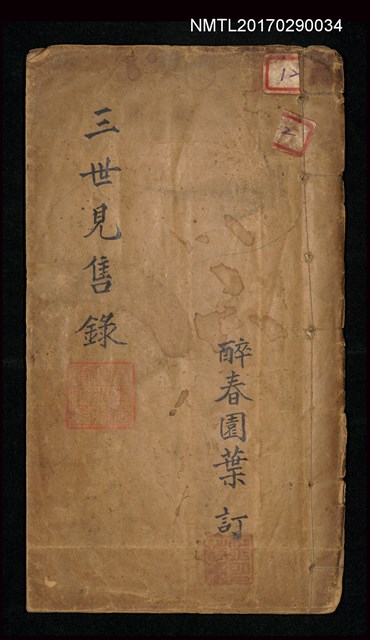 NMTL20170290034
12
2
三世見售錄
醉春園葉訂